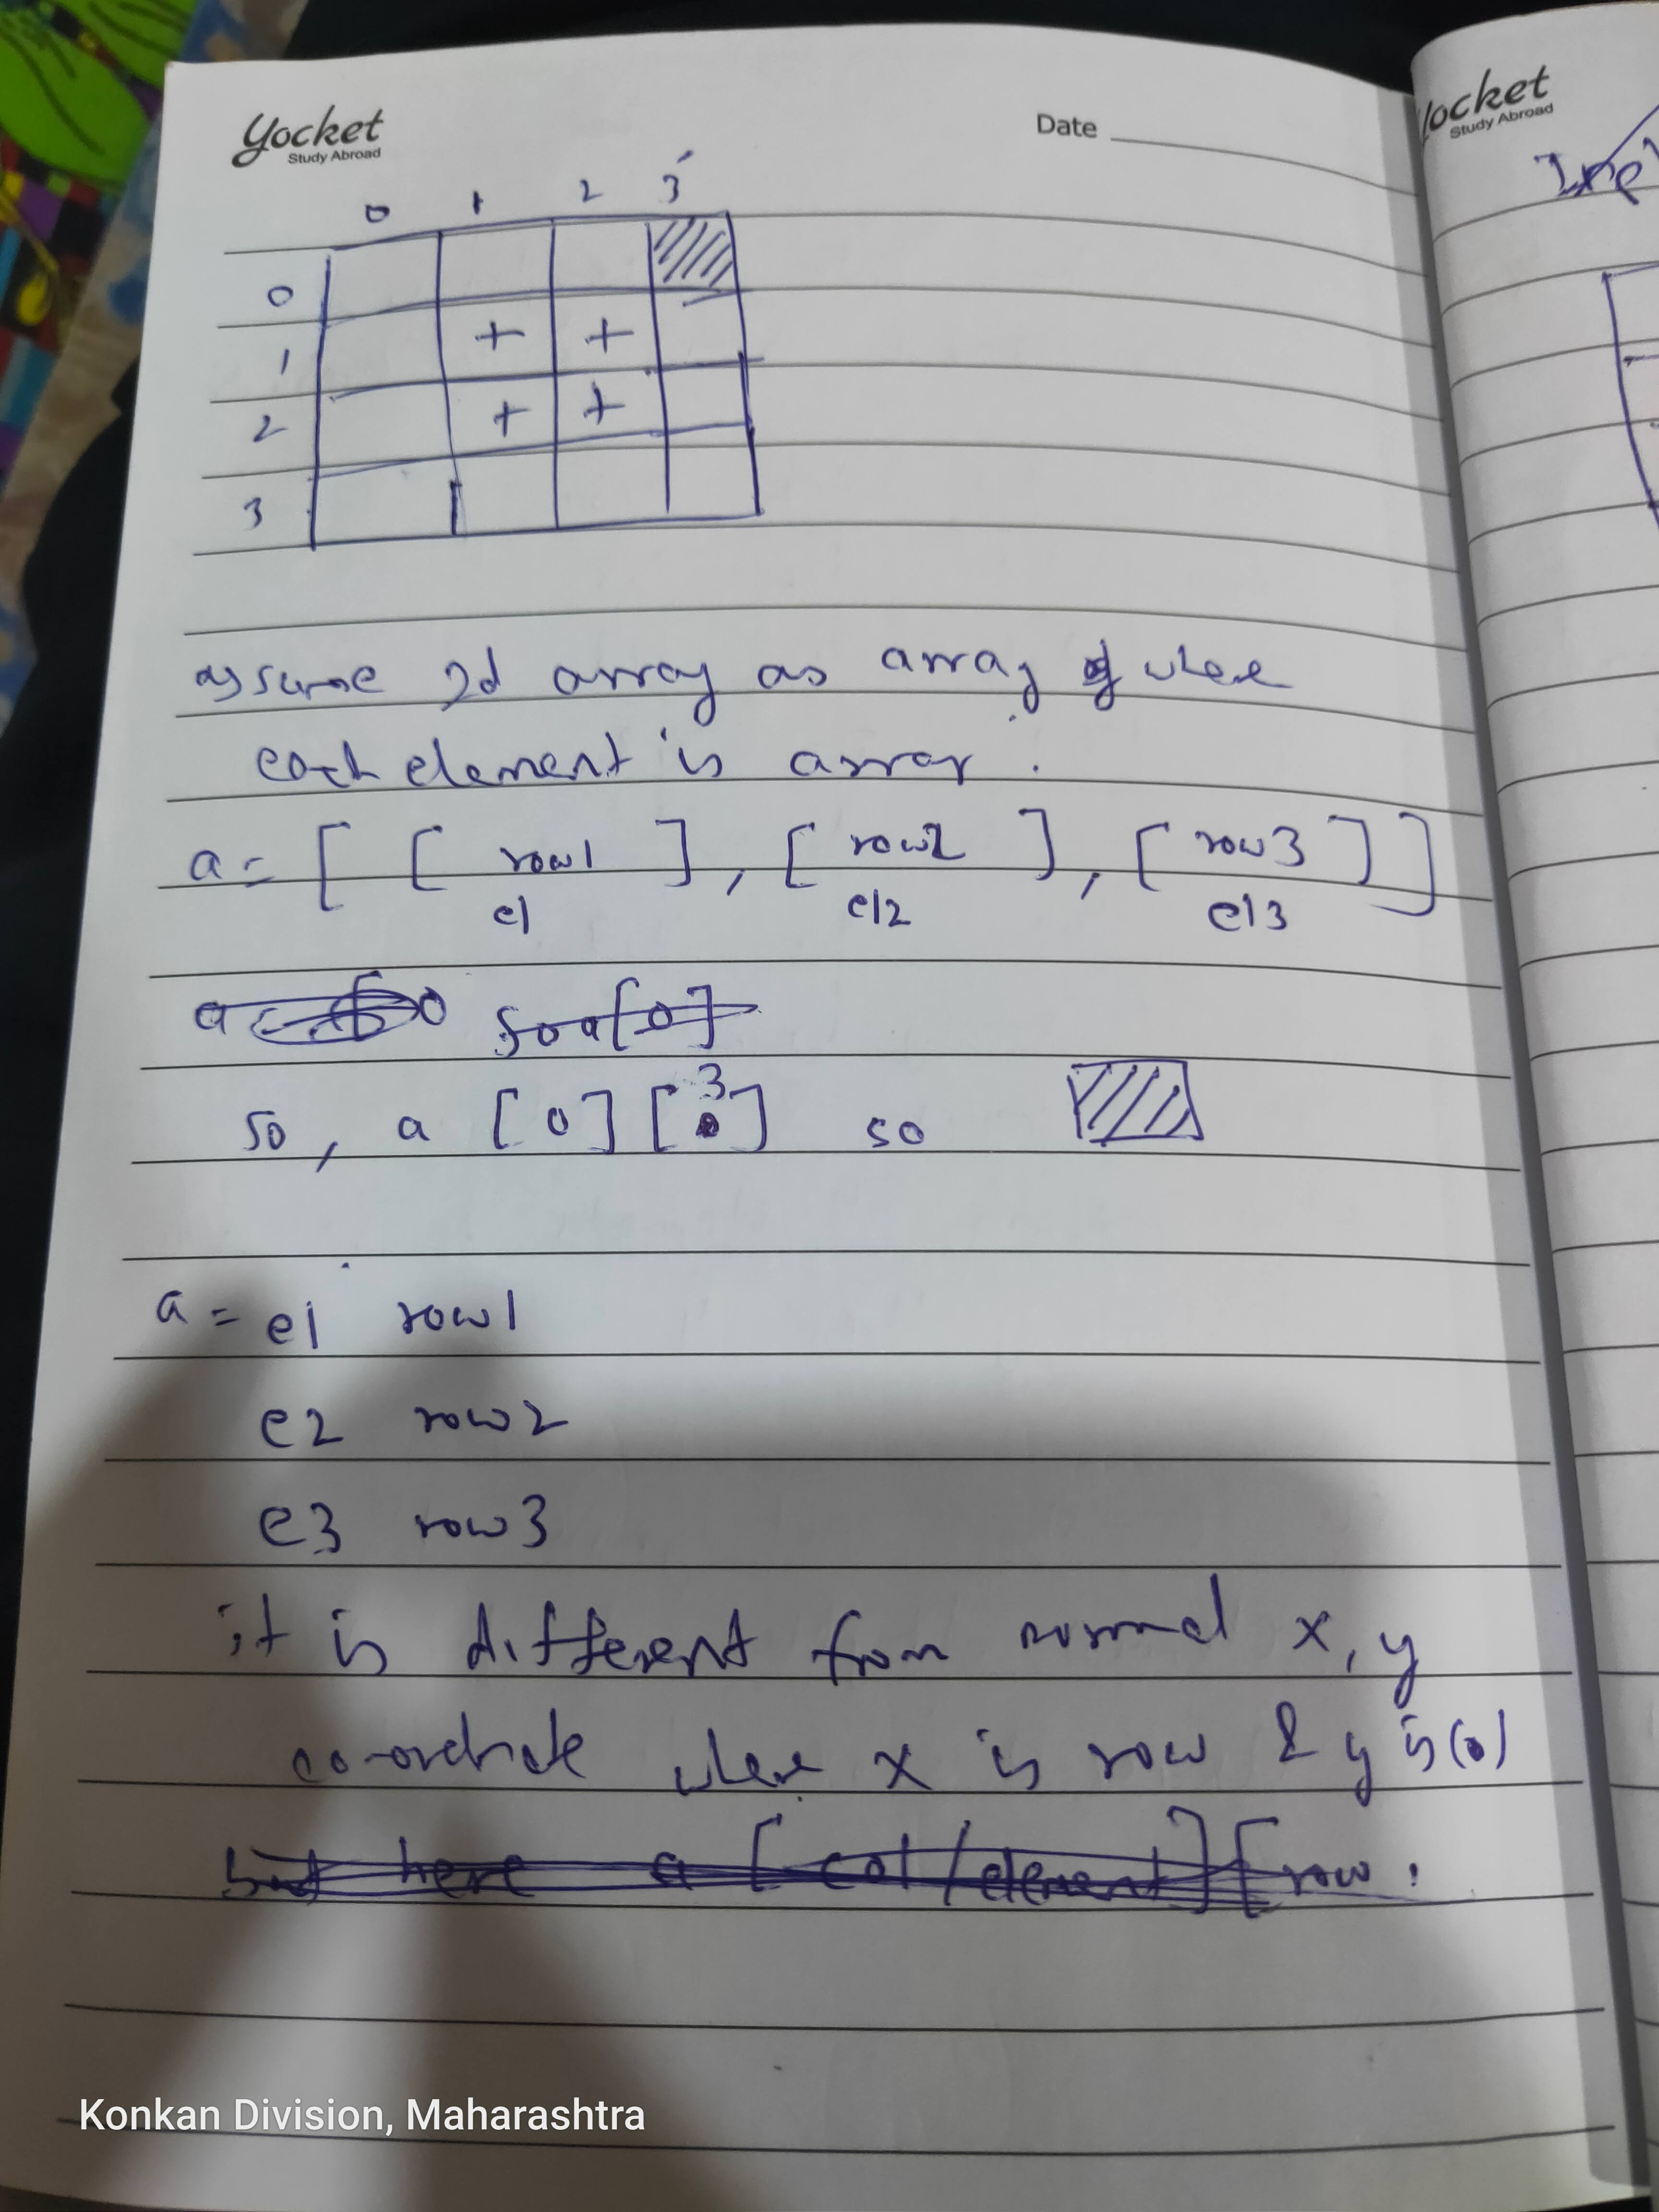 Yocket
Study Abroad
Date
Yocket
Study Abroad
0 1 2 3
0
1 + +
2 + +
3
assume 2d array as array of where
each element is array.
a = [ [ row1 ], [ row2 ], [ row3 ] ]
el el2 el3
so a[0]
so, a [0] [3] so
a = e1 row1
e2 row2
e3 row3
it is different from normal x, y
co-ordinate where x is row & y is col
but here a [col/element] [row.
Konkan Division, Maharashtra